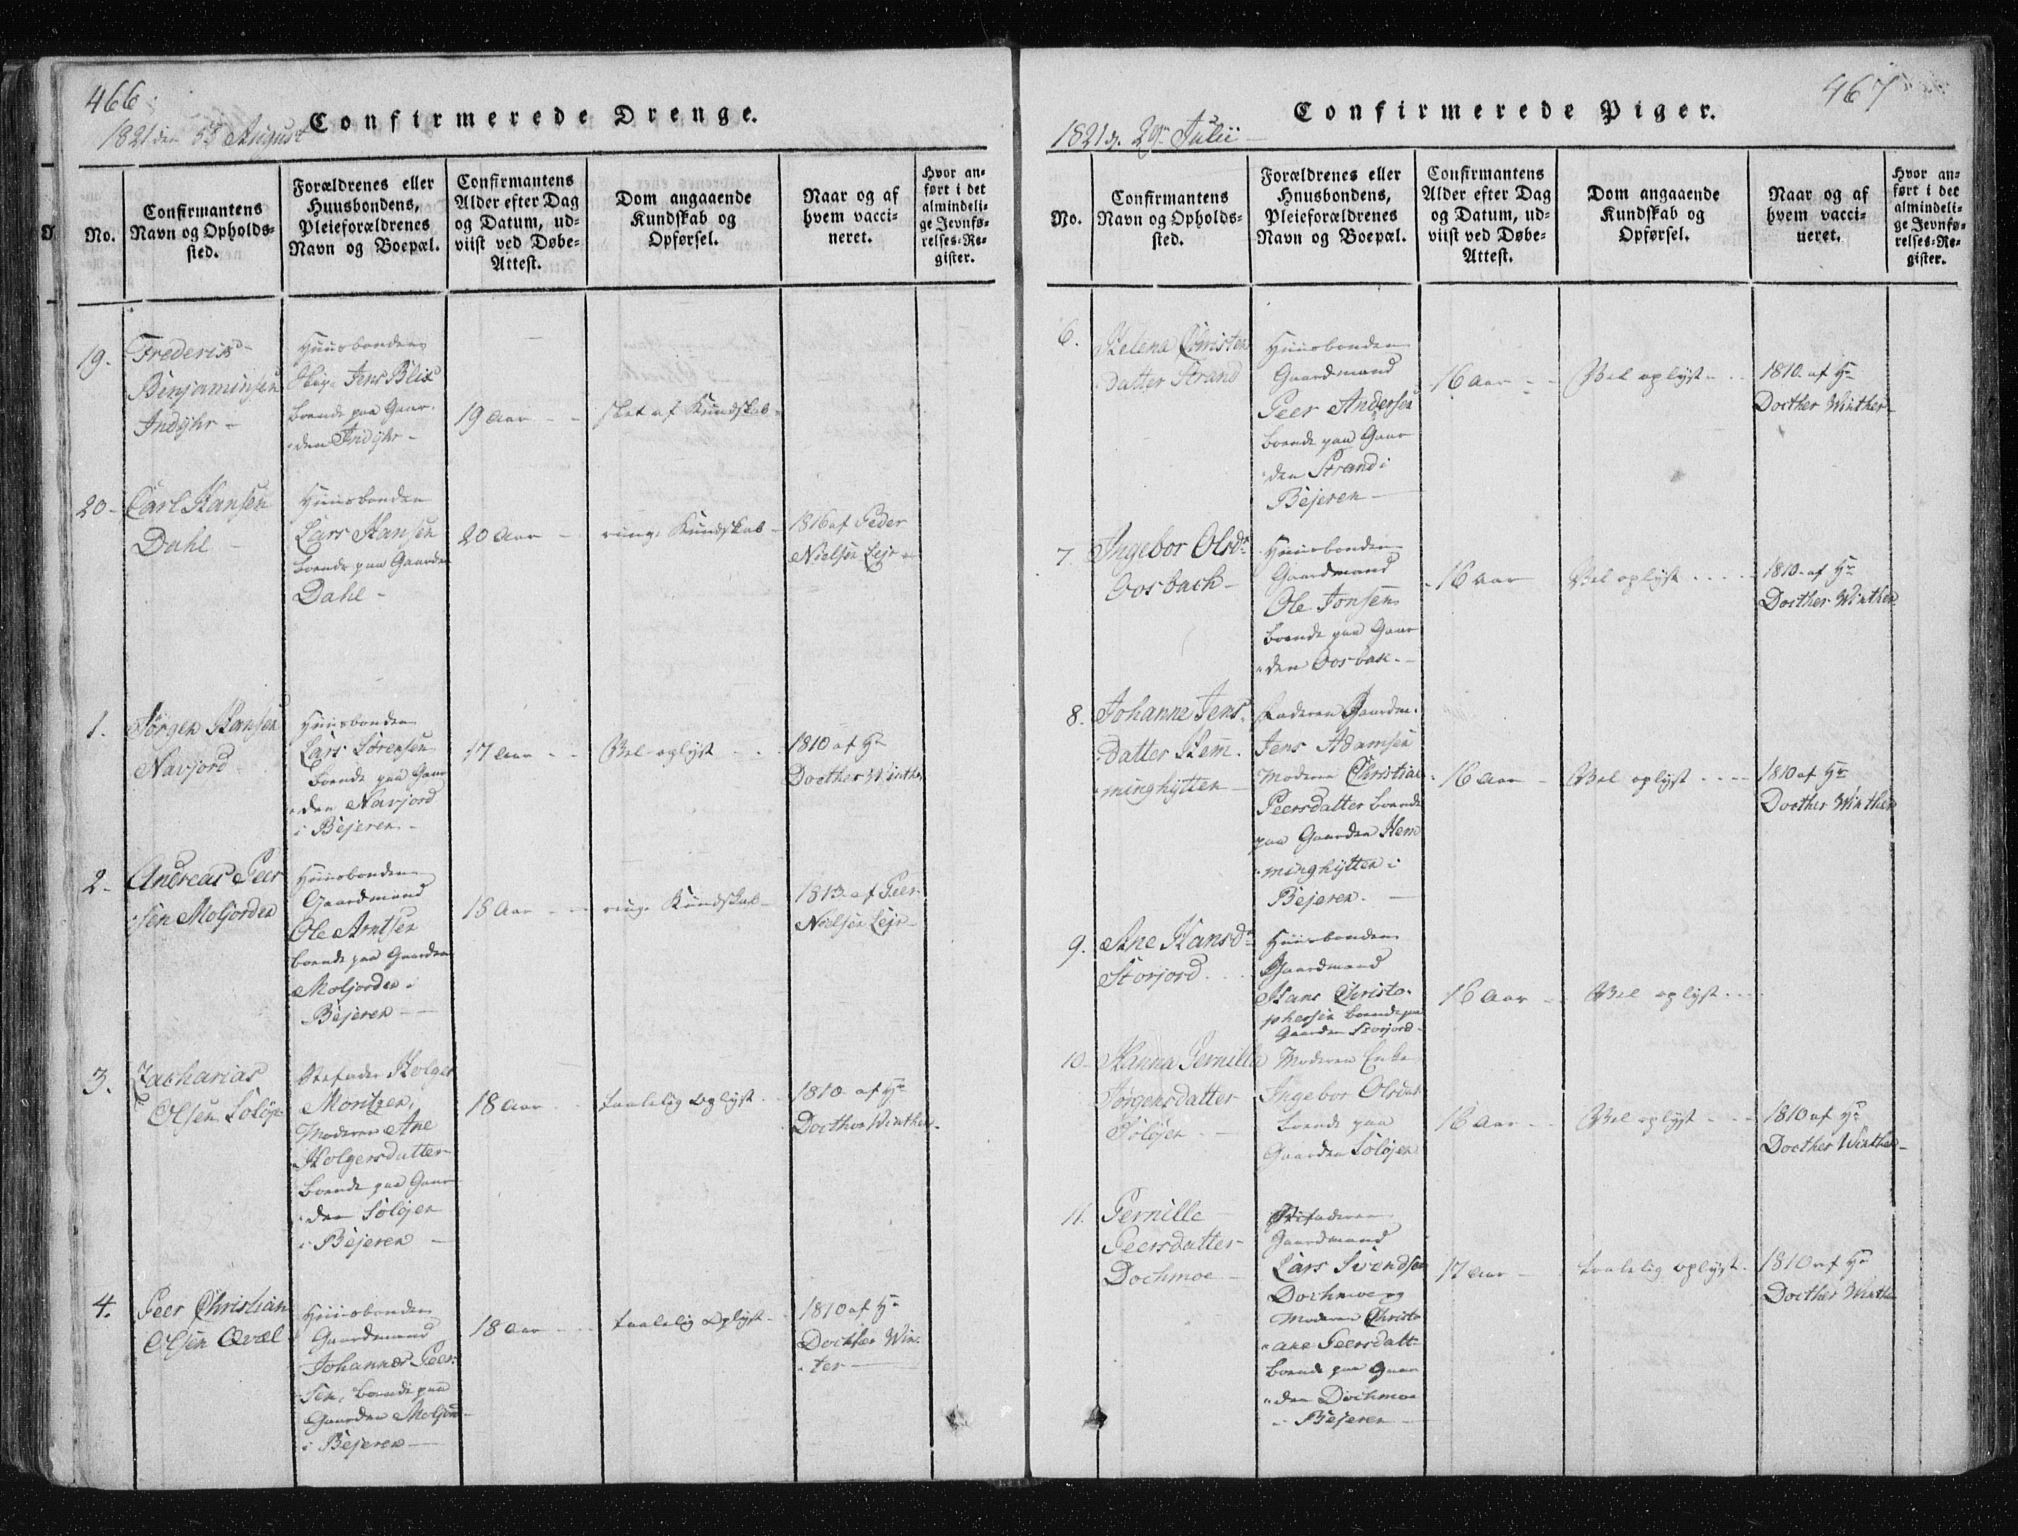 466.
Confirmerede Drenge.
1821 den 5te August
No.
Confirmantens
Navn og Opholds-
sted.
Forældrenes eller
Huusbondens,
Pleieforældrenes
Navn og Boepæl.
Confirmantens
Alder efter Dag
og Datum, ud-
viist ved Døbe-
Attest.
Dom angaaende
Kundskab og
Opførsel.
Naar og af
hvem vacci-
neret.
Hvor an-
ført i det
almindeli-
ge Jevnfø-
relses-Re-
gister.
19.
Frederik
Benjaminsen
Indyhr -
Huusbonden
Jens Blix
boende paa Gaar-
den Indyhr -
19 Aar - -
slet af Kundskab -
20 -
Carl Hansen
Dahl -
Huusbonden
Lars Hansen
boende paa Gaarden
Dahl -
20 Aar -
ringe Kundskab -
1816 af Peder
Nielsen Lejr -
1.
Jørgen Hansen
Navjord
Huusbonden
Lars Sørensen
boende paa Gaar-
den Navjord
i Bejeren -
17 Aar - -
Vel oplyst - -
1810 af Hr
Docther Winther
2.
Andreas Peer-
sen Moljorden
Huusbonden
Gaardmand
Ole Arntsen
boende paa Gaarden
Moljorden i
Bejeren -
18 Aar - -
ringe Kundskab -
1813 af Peer
Nielsen Lejr -
3.
Zacharias
Olsen Soløjen
Stefader Holger
Moritzen,
Moderen Ane
Holgersdatter
boende paa Gaar-
den Soløjen
i Bejeren -
18 Aar - -
taalelig oplyst -
1810 af Hr
Docther Winther.
4.
Peer Christian
Olsen Qvæl
Huusbonden
Gaardmand
Johannes Peer-
sen, boende paa
Gaarden Moljord
i Bejeren -
18 Aar - -
taalelig oplyst -
1810 af Hr
Docther Win-
ter -
467
Confirmerede Piger.
1821 d. 29de Julii
No.
Confirmantens
Navn og Opholds-
sted.
Forældrenes eller
Huusbondens,
Pleieforældrenes
Navn og Boepæl.
Confirmantens
Alder efter Dag
og Datum, ud-
viist ved Døbe-
Attest.
Dom angaaende
Kundskab og
Opførsel.
Naar og af
hvem vacci-
neret.
Hvor an-
ført i det
almindeli-
ge Jevnfø-
relses-Re-
gister.
6.
Helena Christens
datter Strand
Huusbonden
Gaardmand
Peer Andersen
boende paa Gaar-
den Strand i
Bejeren -
16 Aar - -
Vel oplyst - -
1810 af Hr
Docther Winther
7.
Ingebor Olsdr
Oosbach -
Huusbonden
Gaardmand
Ole Jonsen
boende paa Gaar-
den Oosbak. -
16 Aar
Vel oplyst - - - -
1810 af Hr
Docther Winther
8.
Johanne Jens
datter Hem-
minghytten -
Faderen Gaardm.
Jens Adamsen
Moderen Christiae
Peersdatter boende
paa Gaarden Hem
minghytten i
Bejeren. -
16 Aar -
Vel oplyst - - - -
1810 af Hr
Docther Winther
9.
Ane Hansdr
Storjord.
Huusbonden
Gaardmand
Hans Christo-
phersen boende paa
Gaarden Storjord.
16 Aar -
Vel oplyst - - -
10 -
Hanna Pernilla
Jørgensdatter
Soløjen -
Moderen Enke
Ingebor Olsdat
boende paa
Gaarden Soløjen
16 Aar -
Vel oplyst - - -
1810 af Hr
Docther Winther
11.
Pernille
Peersdatter
Dochmoe -
Stefaderen
Gaardmand
Lars Svendsen
Dochmoe og
Moderen Christi-
ane Peersdatt-
boende paa Gaar-
den Dochmoe
i Bejeren -
17 Aar -
taalelig oplyst.
1810 af Hr
Docther Winther